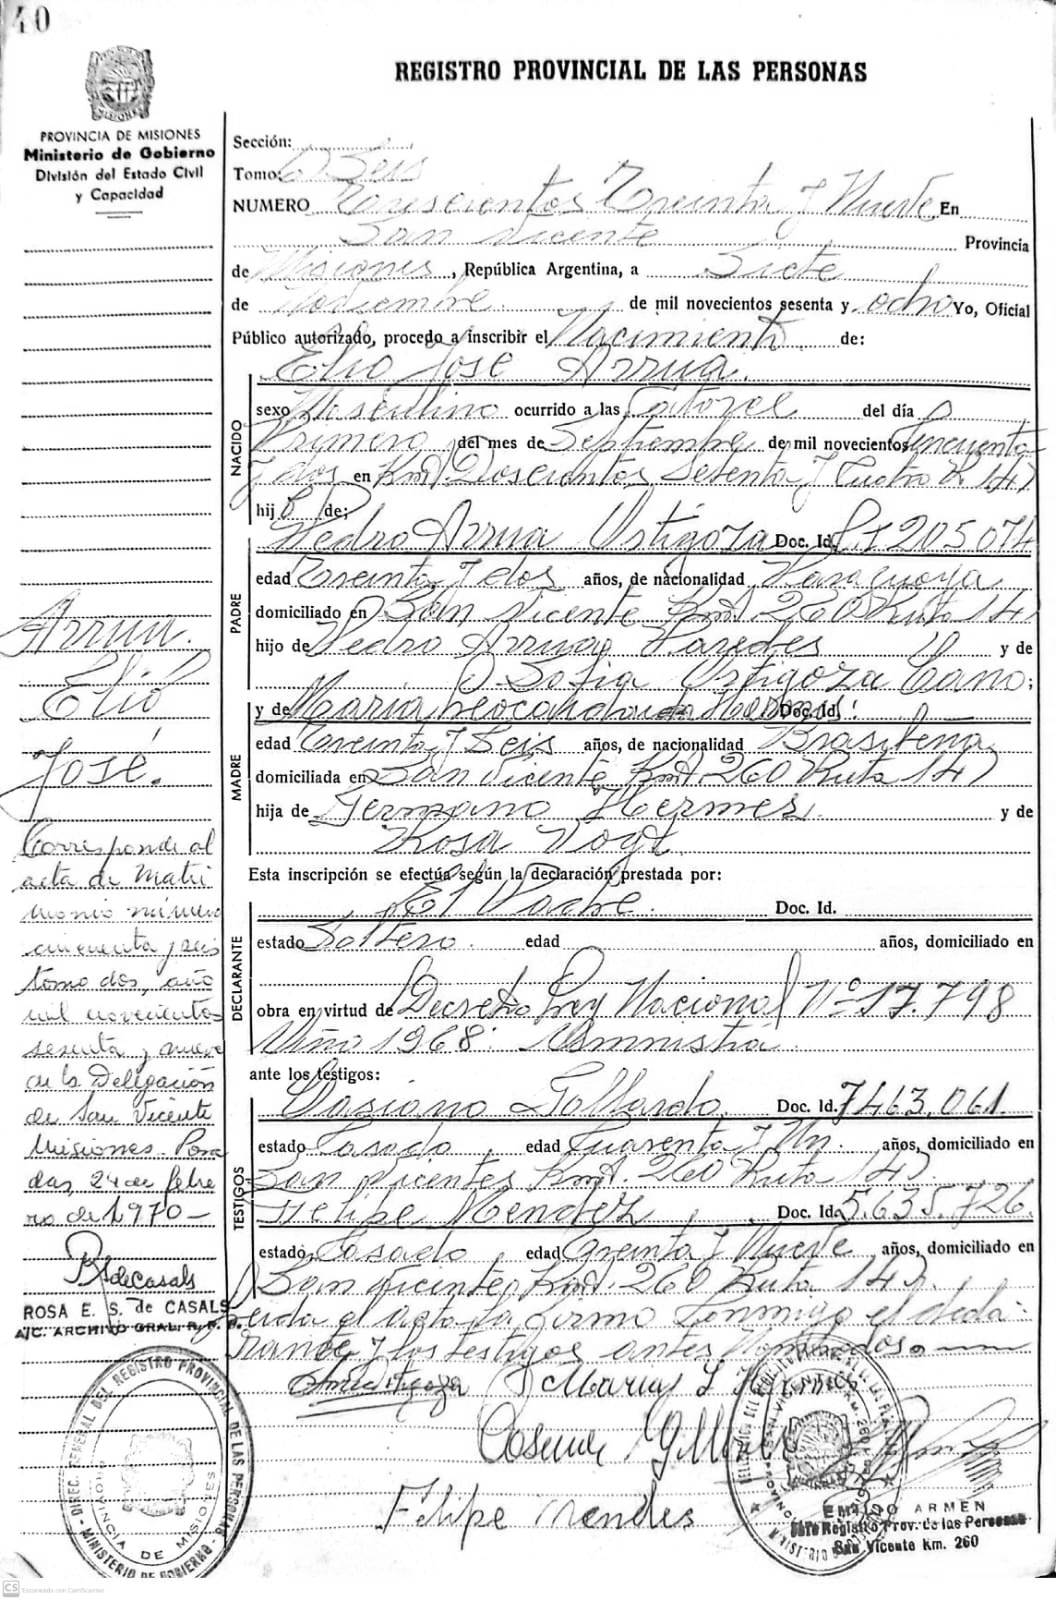 40
REGISTRO PROVINCIAL DE LAS PERSONAS
MISIONES
PROVINCIA DE MISIONES
Ministerio de Gobierno
División del Estado Civil
y Capacidad
Sección:
Tomo: Seis
NUMERO Trescientos Treinta y Nueve En
San Vicente Provincia
de Misiones, República Argentina, a Siete
de Noviembre de mil novecientos sesenta y ocho Yo, Oficial
Público autorizado, procedo a inscribir el Nacimiento de:
Elio José Arrua
NACIDO
sexo Masculino ocurrido a las Catorce del día
Primero del mes de Septiembre de mil novecientos cincuenta
y dos en Km. Doscientos Sesenta y Cuatro R. 14
hijo de:
PADRE
Pedro Arrua Ustigoza Doc. Id. 1205074
edad Treinta y dos años, de nacionalidad Paraguaya
domiciliado en San Vicente Km. 260 Ruta 14
hijo de Pedro Arrua Paredes y de
Sofia Ustigoza Cano;
MADRE
y de Maria Doc. Id.
edad Treinta y Seis años, de nacionalidad Brasileña
domiciliada en San Vicente Km. 260 Ruta 14
hija de Germano Hermes y de
Rosa Vogt
Esta inscripción se efectúa según la declaración prestada por:
DECLARANTE
El Padre. Doc. Id.
estado Soltero. edad años, domiciliado en
obra en virtud de Decreto Ley Nacional Nº 17.798
Año 1968. Amnistía.
ante los testigos:
TESTIGOS
Gallardo. Doc. Id. 7463.061.
estado Casado edad Cuarenta y Un. años, domiciliado en
San Vicente Km. 260 Ruta 14
Felipe Mendez Doc. Id. 5.635.726.
estado Casado edad Treinta y Nueve años, domiciliado en
San Vicente Km. 260 Ruta 14
Leida el acta la firma conmigo el decla-
rante y los testigos antes nombrados.
Maria
Felipe Mendes
EMILIO ARMEN
Jefe Registro Prov. de las Personas
San Vicente Km. 260
Arrua.
Elio
José.
Corresponde al
acta de Matri
monio número
cincuenta y seis
tomo dos, año
mil novecientos
sesenta y nueve
de la Delegación
de San Vicente
Misiones. Posa
das, 24 de febre
ro de 1970-
RdeCasals
ROSA E. S. de CASALS
A/C. ARCHIVO GRAL. R. P. P.
DIREC. GENERAL DEL REGISTRO PROVINCIAL DE LAS PERSONAS - MINISTERIO DE GOBIERNO
PROVINCIA DE MISIONES
CS Escaneado con CamScanner